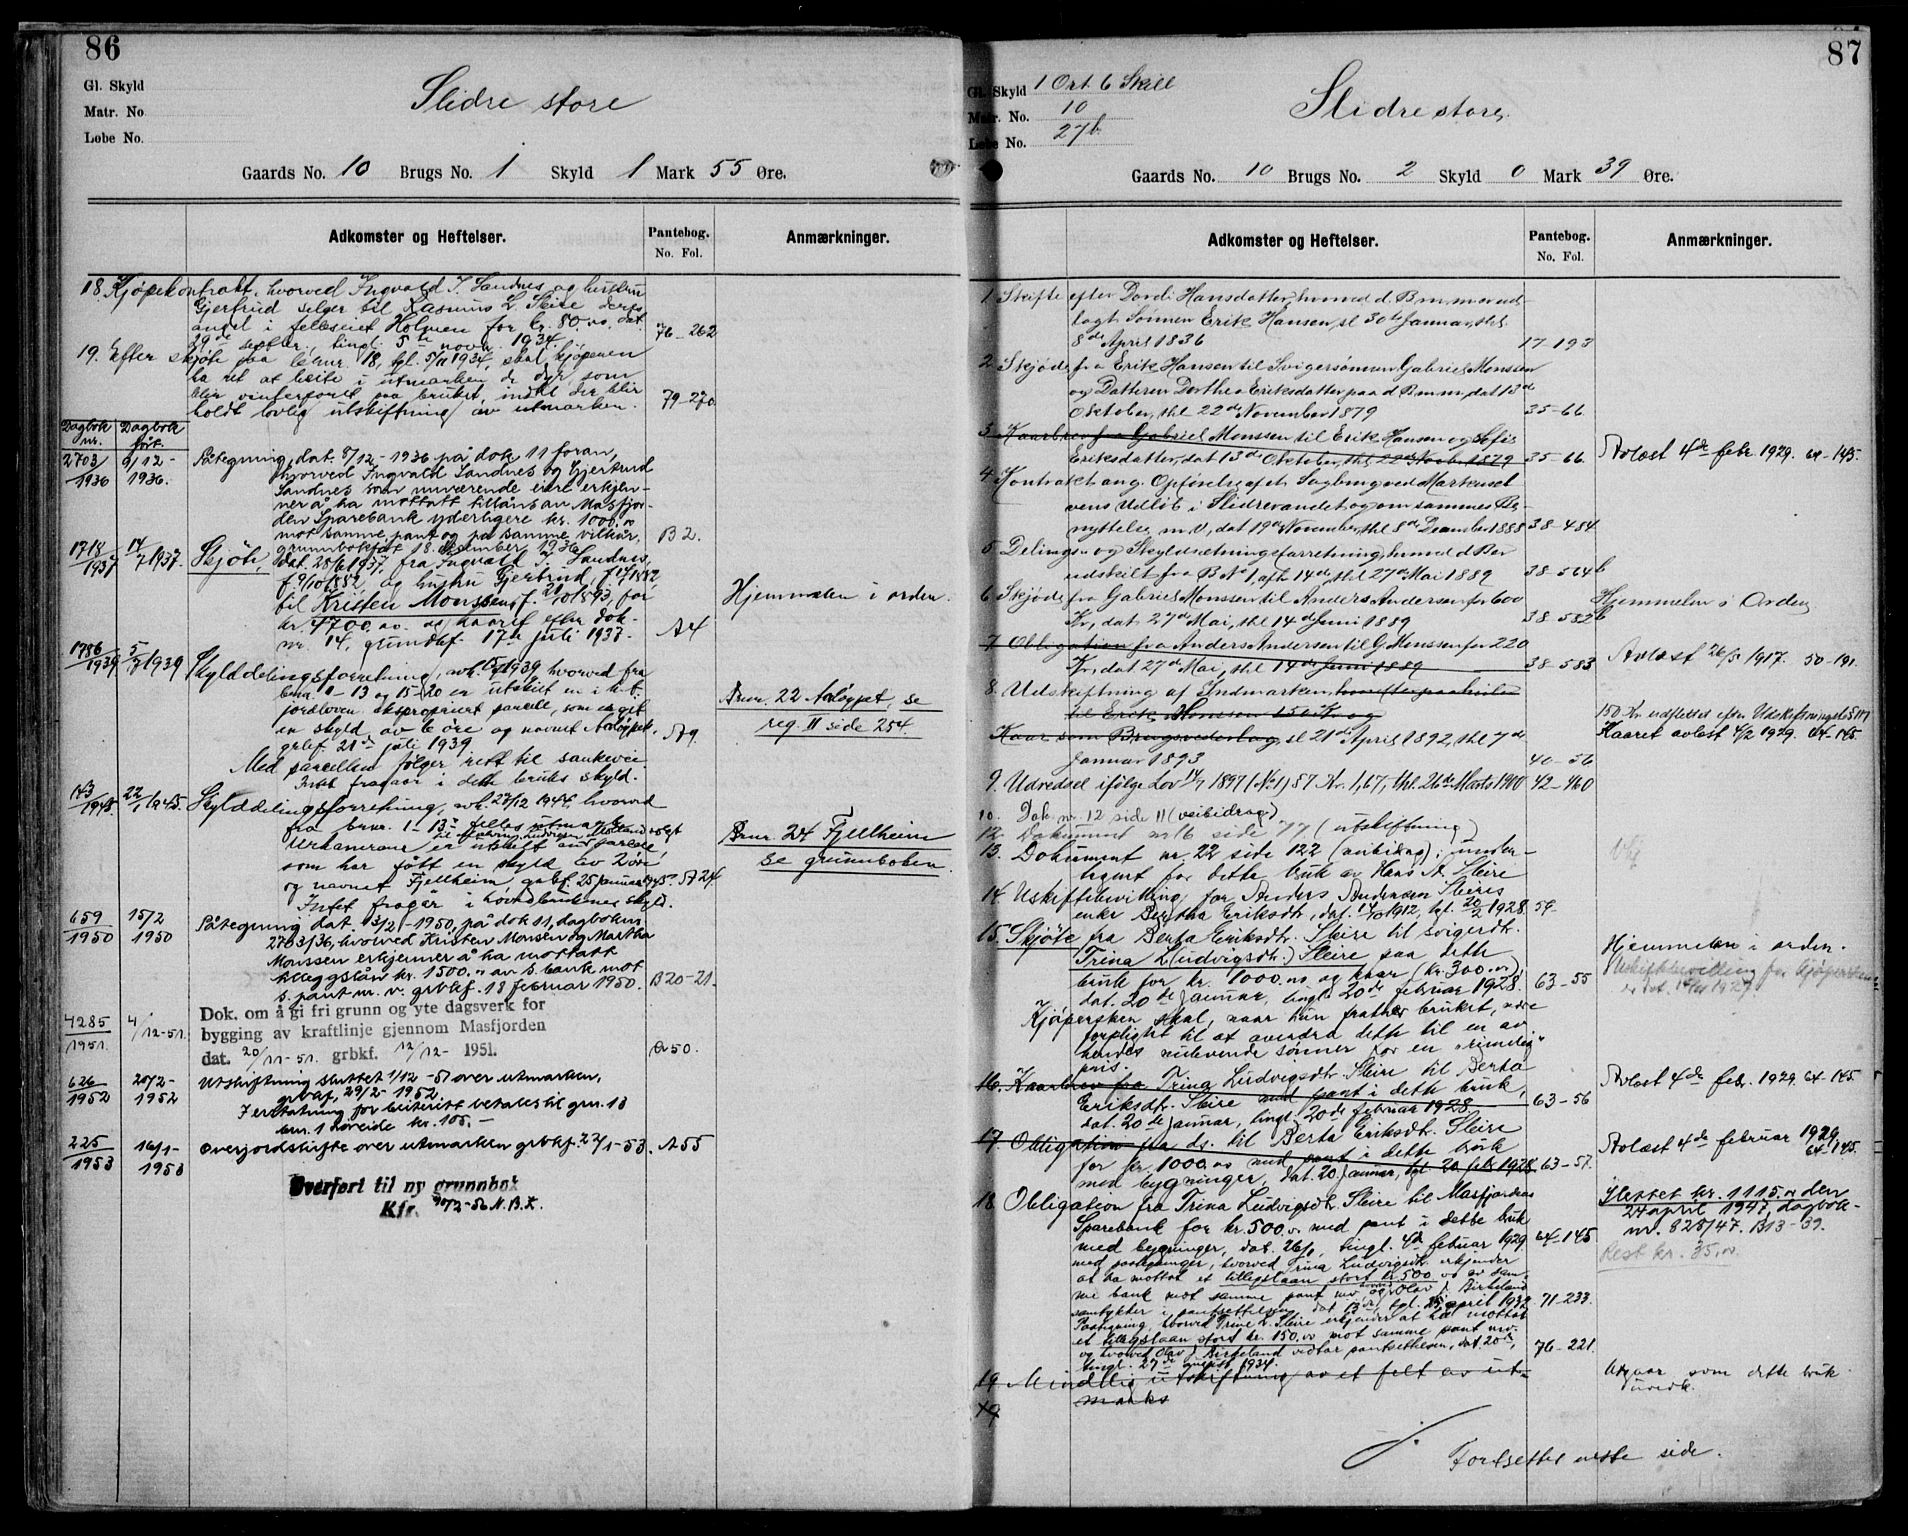 86
Gl. Skyld
Matr. No
Løbe No.
Slidre store
Gaards No. 10 Brugs No. 1 Skyld 1 Mark 55 Øre.
Adkomster og Heftelser.
Pantebog.
No. Fol.
Anmærkninger.
18 Kjøpekontrakt, hvorved Ingvald J. Sandnes og hustru
Gjertrud selger til Rasmus L. Sleire deres
andel i fellesseiet Holmen for kr. 80.00, dat.
29de septbr., tingl. 5te novbr. 1934. 76-262
19. Efter skjøte paa brnr. 18, tgl. 5/11 1934, skal kjøperen
ha ret at beite i utmarken de dyr, som
blir vinterforet paa bruket, indtil der blir
holdt lovlig utskiftning av utmarken. 79-270
Dagbok nr.
Dagbok ført.
2703/1936 9/12-1936. Påtegning, dat. 8/12-1936 på dok 11 foran,
hvorved Ingvald Sandnes og Gjertrud
Sandnes som nuværende eiere erkjen-
ner å ha mottatt tillån av Masfjor-
den Sparebank yderligere kr. 1000.00
mot samme pant og på samme vilkår,
grunnbokført 18. desember 1936. B 2.
1718/1937 14/7 1937. Skjøte, dat. 28/6 1937 fra Ingvald J. Sandnes,
f. 9/10 1882 og hustru Gjertrud,
til Kristen Monssen, f. 20/10 1893, for
kr. 4700.00 og kaar efter dok.
nr. 14, grundbf. 17de juli 1937. A4
Hjemmelen i orden.
1786/1939 5/7 1939 Skylddelingsforretning, hvorved fra
bnr. 1-13 og 15-20 er utskilt en i h.t.
jordloven ekspropriert parsell, som er git
en skyld av 6 øre og navnet Aaløypet,
grbf. 21de juli 1939. A9.
Med parcellen følger rett til sankevei.
Intet fragaar i dette bruks skyld.
Brnr. 22 Aaløypet, se
reg. II side 254.
143/1945 22/1 1945. Skylddelingsforretning, avh. 27/12 1944, hvorved
fra brnr. 1-13's felles utmark
er utskilt en parcell
som har fått en skyld av 2 øre
og navnet Fjellheim, grbf. 25 januar 1945. A24
Intet fragår i hovedbrukenes skyld.
Brnr. 24 Fjellheim
se grunnboken.
659/1950 15/2 1950 Påtegning dat. 13/2-1950, på dok 11, dagboknr.
2703/36, hvorved Kristen Monsen og Martha
Monssen erkjenner å ha mottatt
tilleggslån kr. 1500.00 av s. bank mot
s. pant m. v. grbkf. 18 februar 1950. B 20-21.
4285/1951. 4/12-51. Dok. om å gi fri grunn og yte dagsverk for
bygging av kraftlinje gjennom Masfjorden
dat. 20/11-51. grbkf. 12/12- 1951. A 50.
626/1952 20/2-1952 Utskiftning sluttet 1/12-51 over utmarken,
grbkf. 29/2-1952
I erstatning for beiterett betales til gnr. 13
bnr. 1 Løreide kr. 105.-
225/1953 16/1-1953 Overjordskifte over utmarken grbkf. 22/1-53. A55
Overført til ny grunnbok
Kfr. 20/2-56 N.B.K.
87
Gl. Skyld 1 Ort 6 Skill
Matr. No. 10
Løbe No. 27b
Slidre store
Gaards No. 10 Brugs No. 2 Skyld 0 Mark 39 Øre.
Adkomster og Heftelser.
Pantebog.
No. Fol.
Anmærkninger.
1 Skifte efter Dordi Hansdatter, hvorved d B m.m er ud-
lagt Sønnen Erik Hansen, sl 30te Januar, thl.
8de April 1836 17-193
2 Skjøde fra Erik Hansen til Svigersønnen Gabriel Monssen
og Datteren Dorthea Eriksdatter paa d B m.m, dat 13de
Oktober, thl 22de November 1879 35-66.
3 Kaarbrev fra Gabriel Monssen til Erik Hansen og Sofie
Eriksdatter, dat 13de Oktober, thl. 22de Novbr. 1879 35-66.
Avlæst 4de febr. 1929. 64-145.
4 Kontrakt ang. Opførelse af et Sagbrug ved Markusel-
vens Udløb i Slidrevandet og om sammes Be-
nyttelse m.V, dat 19de November, thl 8de December 1888 38-484
5 Delings- og Skyldsætningsforretning, hvorved d B er
udskilt fra B No 1, afh 14de, thl 27de Mai 1889 38-564b
6 Skjøde fra Gabriel Monssen til Anders Andersen for 600
Kr, dat 27de Mai, thl 14de Juni 1889 38-582b
Hjemmelen i Orden
7 Obligation fra Anders Andersen til G Monssen for 220
Kr, dat 27de Mai, thl 14de Juni 1889 38-583
Avlæst 26/5 1917. 50-191.
8. Udskiftning af Indmarken, hvorefter paahviler
til Erik Hansen 150 Kr og
Kaar som Brugsvederlag, sl 21de April 1892, thl 7de
Januar 1893 40-56
150 Kr udslettet efter Udskiftningslov
Kaaret avlæst 4/2 1929. 64-145.
9. Udredsel ifølge Lov 1897 (No 1) 87 Kr. 1,67, thl. 26de Marts 1900 42-460
10. Dok. nr. 12 side 11 (veibidrag)
12. Dokument nr 16 side 77 (utskiftning)
13. Dokument nr. 22 side 122 (veibidrag); under-
tegnet for dette bruk av Hans A. Sleire
14 Uskiftebevilling for Anders Andersen Sleires
enke Bertha Eriksdtr, dat. 14/10 1912, tgl. 20/2 1928. 59-
15. Skjøte fra Berta Eriksdtr. Sleire til svigerdtr.
Trina L(udvigsdtr.) Sleire paa dette
bruk for kr. 1000.00 og kaar (kr. 300.00)
dat. 20de januar, tingl. 20de februar 1928. 63-55
Kjøpersken skal, naar hun fratrær bruket, være
forpligtet til at overdra dette til en av
hendes nulevende sønner for en "rimelig"
pris.
Hjemmelen i orden.
Uskiftebevilling for kjøpersken
er dat. 1927
16. Kaarbrev fra Trina Ludvigsdtr. Sleire til Berta
Eriksdtr. Sleire med pant i dette bruk,
dat. 20de januar, tingl. 20de februar 1928. 63-56
Avlæst 4de febr. 1929. 64-145.
17. Obligation fra ds. til Berta Eriksdtr. Sleire
for kr. 1000.00 med pant i dette bruk
med bygninger, dat. 20 januar, tgl. 20 febr 1928. 63-57.
Avlæst 4de februar 1929.
64-145.
18. Obligation fra Trina Ludvigsdtr. Sleire til Masfjordens
Sparebank for kr. 500.00 med pant i dette bruk
med bygninger, dat. 26/1, tingl. 4de februar 1929 64-145
med paategninger, hvorved Trina Ludvigsdtr. erkjender
at ha mottat et tillegslaan stort kr 500 00 av sam-
me bank mot samme pant mv og hvorved Olav J. Birkeland
samtykker i pantsettelsen dat 13de, tgl. 25 april 1932 71-233.
Paategning, hvorved Trine L. Sleire erkjender at ha mottat
et tillegslaan stort kr. 150.00 mot samme pant mv.
og hvorved Olav J. Birkeland vedtar pantsettelsen, dat. 20de,
tingl. 27de august 1934. 76-221.
Slettet kr. 1115.00 den
24 april 1947, dagbok-
nr. 828/47. B13-39.
Rest kr. 35.00.
19 Mindelig utskiftning av et felt av ut-
marks
Utgaar som dette bruk
uvedk.
19
Fortsettes neste side.